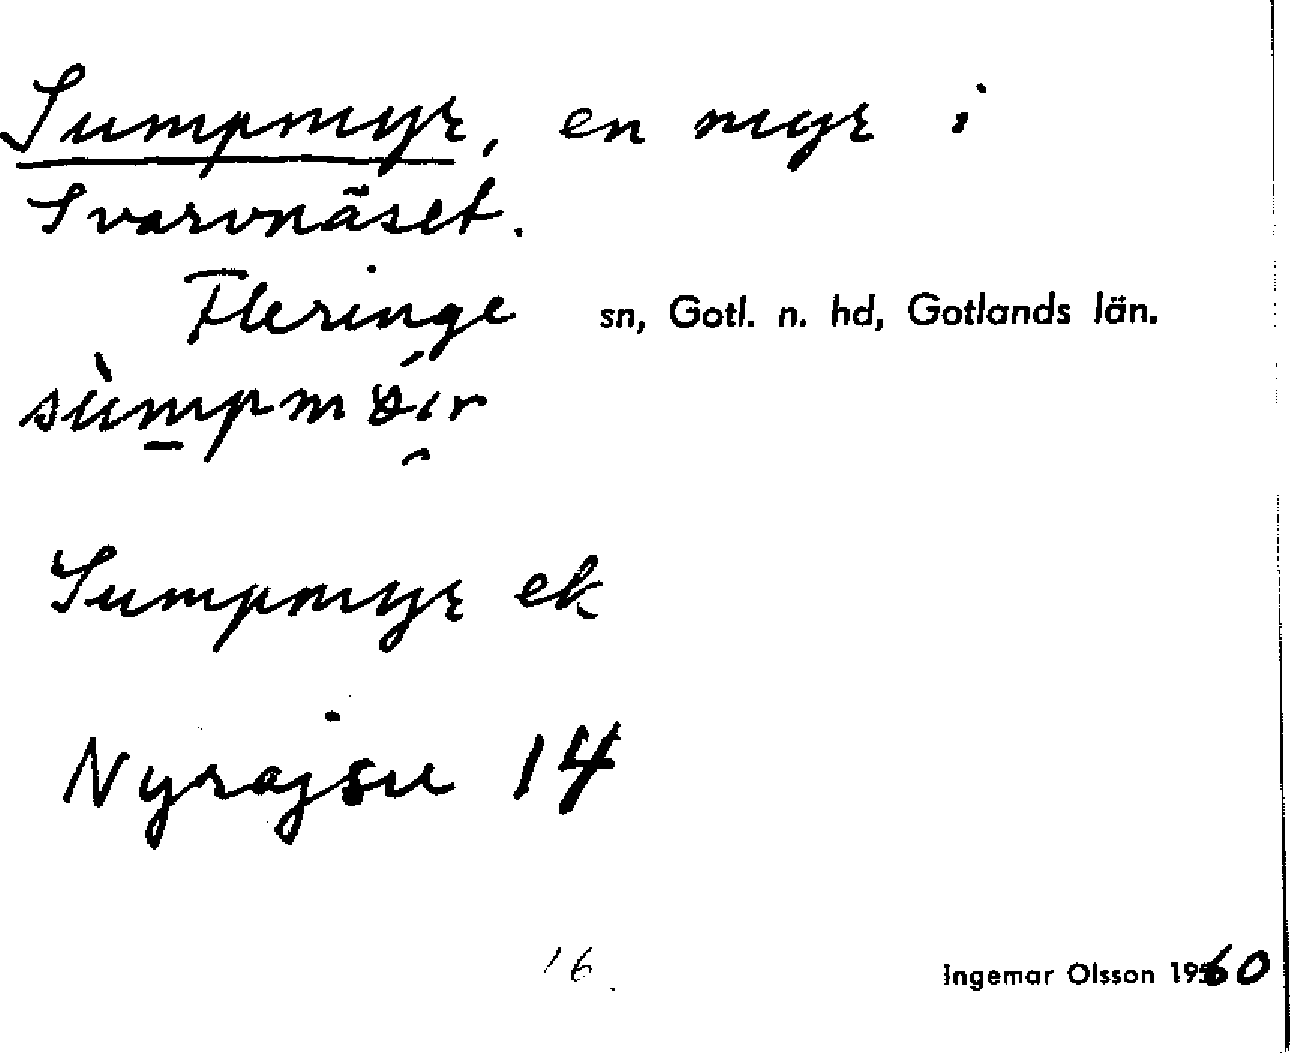 Sumpmyr, en myr i
Svarvnäset.
Fleringe sn, Gotl. n. hd, Gotlands län.
Sumpmyr ek
Nyrajsu 14
16
Ingemar Olsson 1960